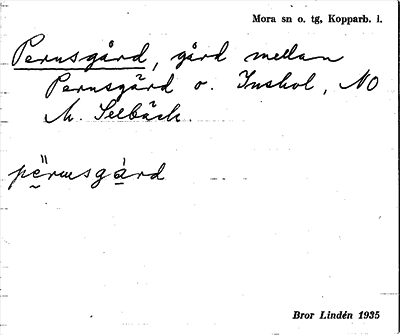 Mora sn o. tg, Kopparb. l.
Perusgård, gård mellan
Perusgärd o. Inshol, NO
M. Selbäck.
pe̤̎rusgạ̀rd
Bror Lindén 1935